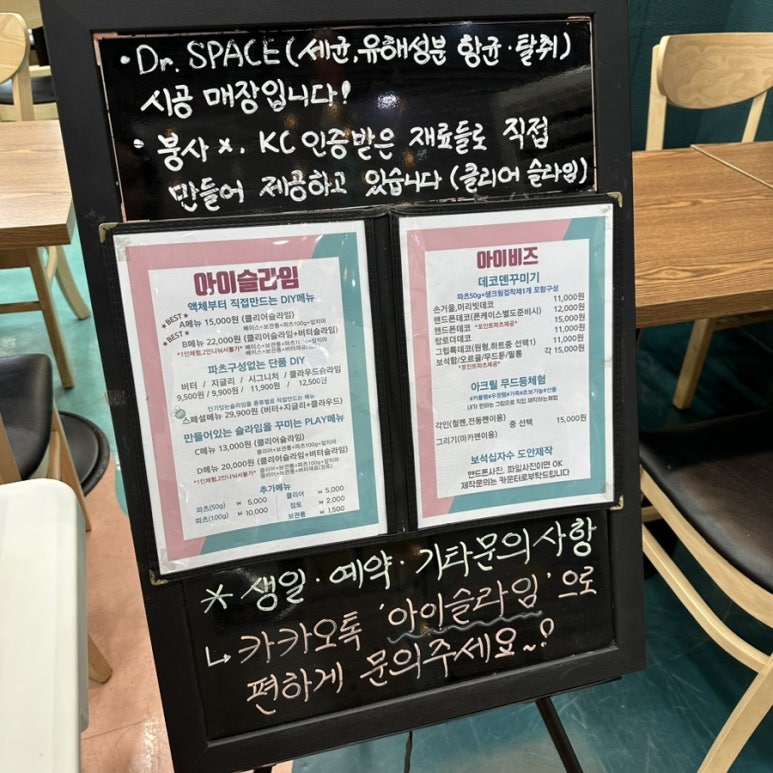 • Dr. SPACE (세균,유해성분 항균·탈취)
시공 매장입니다!
• 붕사 x. KC 인증받은 재료들로 직접
만들어 제공하고 있습니다 (클리어 슬라임)
아이슬라임
액체부터 직접만드는 DIY메뉴
★BEST★
A메뉴 15,000원 (클리어슬라임)
베이스+보관통+파츠100g+앞치마
★BEST★
B메뉴 22,000원 (클리어슬라임+버터슬라임)
*1인체험,2인나눠사용불가*
파츠구성없는 단품 DIY
버터 / 지글리 / 시그니처 / 클라우드슬라임
9,500원 / 9,900원 / 11,900원 / 12,500원
인기있는슬라임을 종류별로 직접만드는 메뉴
스페셜메뉴 29,900원 (버터+지글리+클라우드)
만들어있는 슬라임을 꾸미는 PLAY메뉴
C메뉴 13,000원 (클리어슬라임)
클리어+보관통+파츠100g+앞치마
D메뉴 20,000원 (클리어슬라임+버터슬라임)
*1인체험,2인나눠사용불가*
추가메뉴
파츠(50g) ₩ 5,000 클리어 ₩ 5,000
파츠(100g) ₩ 10,000 점토 ₩ 2,000
보관통 ₩ 1,500
아이비즈
데코덴꾸미기
파츠50g+생크림접착제1개 포함구성
손거울,머리빗데코 11,000원
핸드폰데코(폰케이스별도준비시) 12,000원
핸드폰데코 *포인트파츠제공* 15,000원
탑로더데코 11,000원
그립톡데코(원형,하트중 선택1) 11,000원
보석함/오르골/무드등/필통 각 15,000원
*포인트파츠제공*
아크릴 무드등체험
#커플템#우정템#가족#초보가능#선물
내가 원하는 그림으로 직접 제작하는체험
각인(철펜,전동펜이용) 중 선택 15,000원
그리기(마카펜이용)
보석십자수 도안제작
핸드폰사진, 파일사진이면 OK
제작문의는 카운터로부탁드립니다
* 생일·예약·기타문의사항
↳ 카카오톡 '아이슬라임'으로
편하게 문의주세요~?